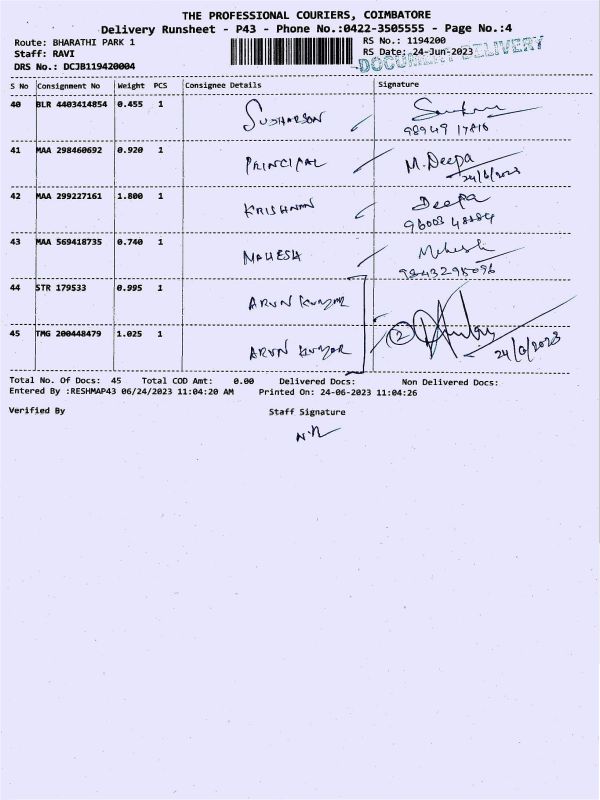 THE PROFESSIONAL COURIERS, COIMBATORE
Delivery Runsheet - P43 - Phone No.:0422-3505555 - Page No.:4
Route: BHARATHI PARK 1 RS No.: 1194200
Staff: RAVI RS Date: 24-Jun-2023
DRS No.: DCJB119420004
DOCUMENT DELIVERY
S No Consignment No Weight PCS Consignee Details Signature
40 BLR 4403414854 0.455 1 SUDHARSON
98949 17816
41 MAA 298460692 0.920 1 PRINCIPAL M. Deepa
24/6/2023
42 MAA 299227161 1.800 1 KRISHNAN Deepa
43 MAA 569418735 0.740 1 MAHESH Mahesh
9843295096
44 STR 179533 0.995 1 ARUN KUMAR
45 TMG 200448479 1.025 1 ARUN KUMAR 2
24/6/2023
Total No. Of Docs: 45 Total COD Amt: 0.00 Delivered Docs: Non Delivered Docs:
Entered By :RESHMAP43 06/24/2023 11:04:20 AM Printed On: 24-06-2023 11:04:26
Verified By Staff Signature